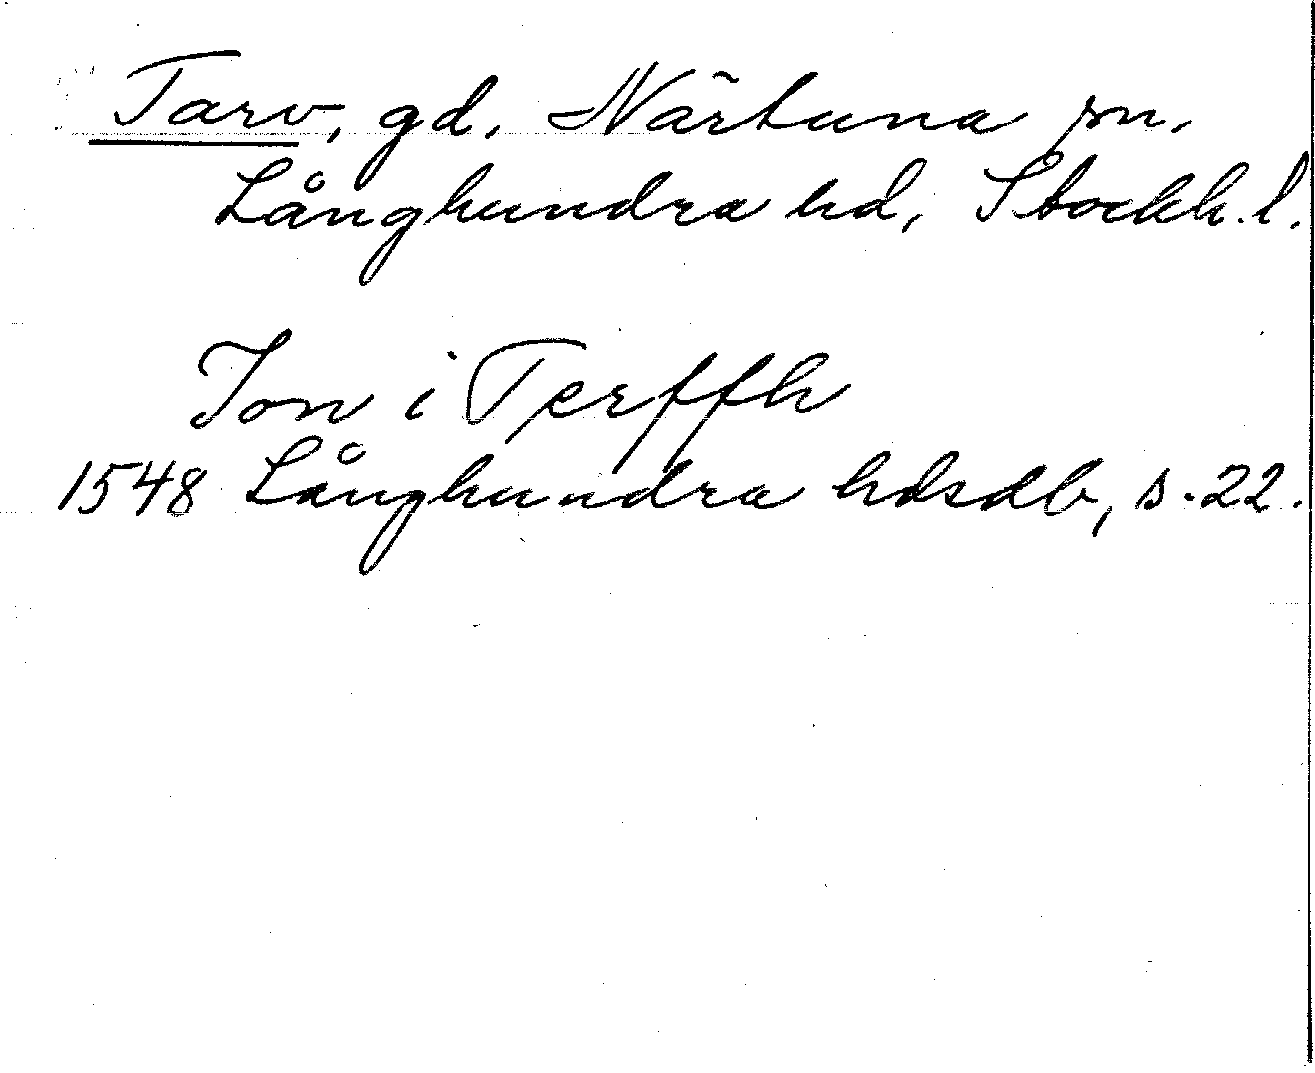 Tarv, gd. Närtuna sn.
Långhundra hd, Stockh. l.
Jon i Terffh
1548 Långhundra hdsdb, s. 22.